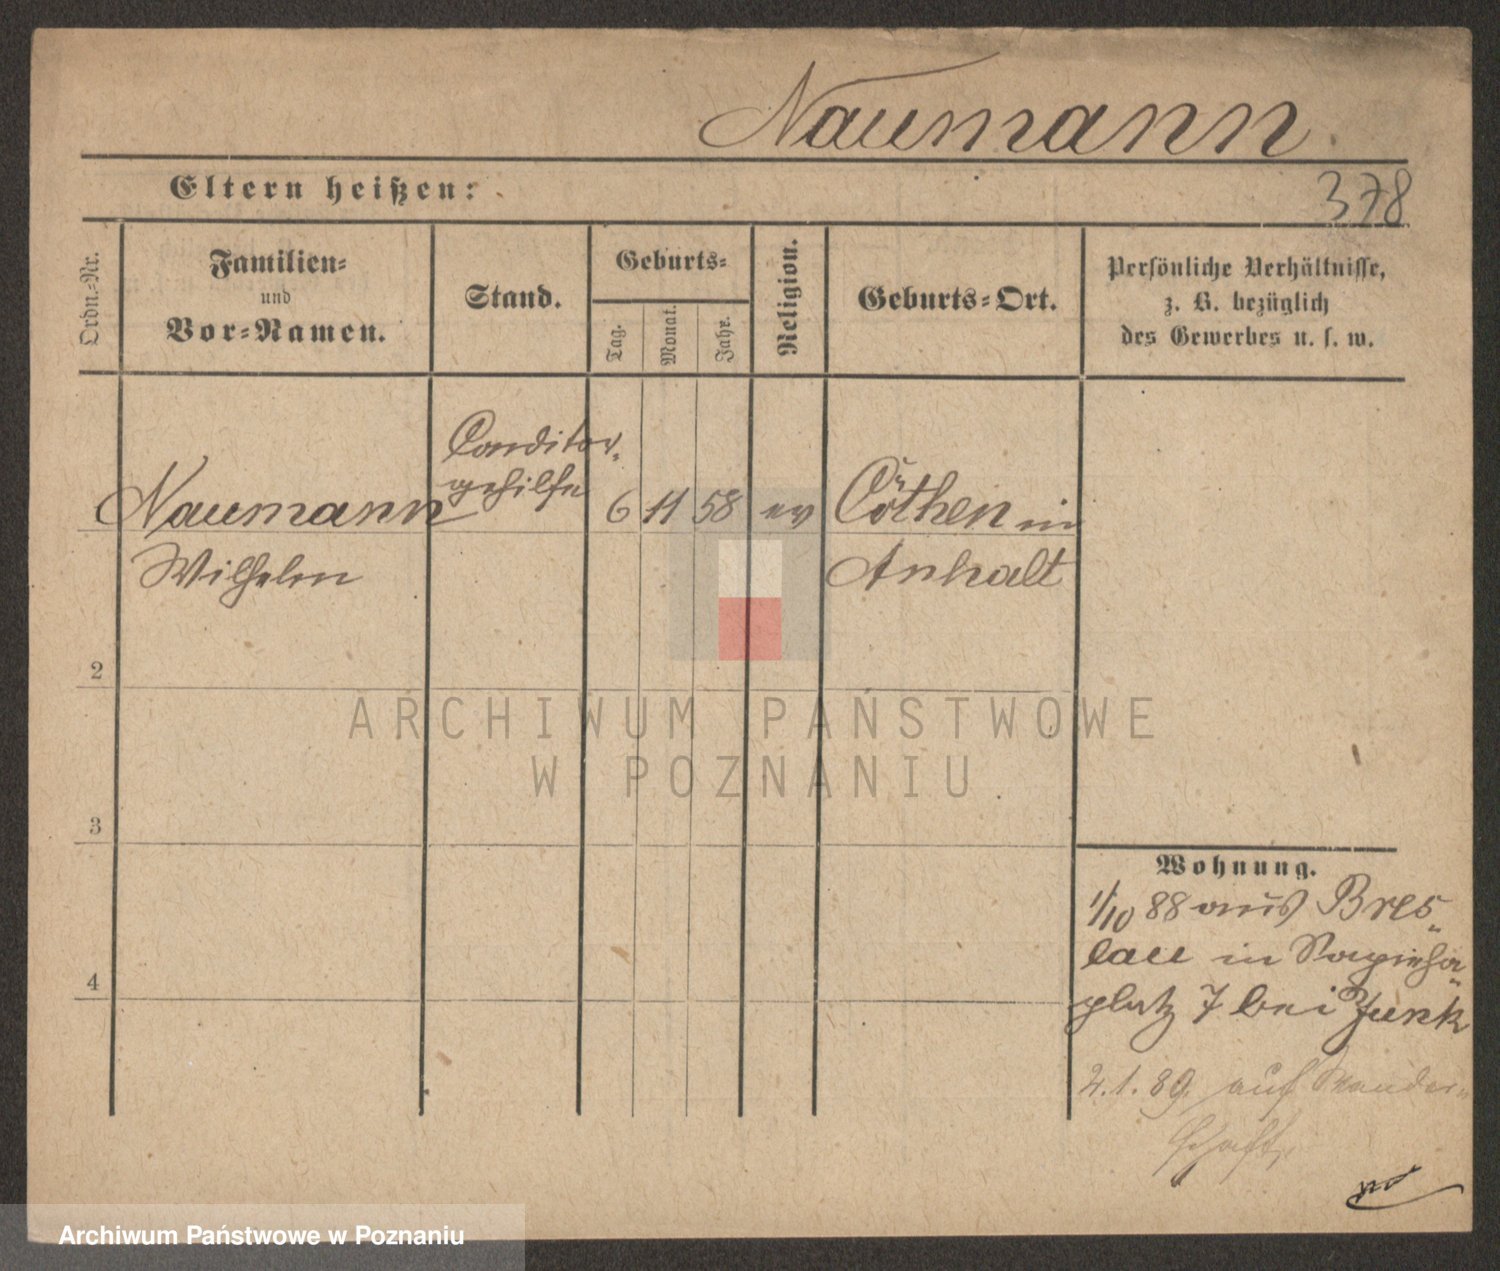 Naumann.
Eltern heißen:
378
Ordn.-Nr.
Familien-
und
Vor-Namen.
Stand.
Geburts-
Tag.
Monat.
Jahr.
Religion.
Geburts-Ort.
Persönliche Verhältnisse,
z. B. bezüglich
des Gewerbes u. s. w.
Conditor-
gehilfe
Naumann
6 11 58 ev
Cöthen in
Wilhelm
Anhalt
2
3
4
ARCHIWUM PAŃSTWOWE
W POZNANIU
Wohnung.
1/10 88 aus Bres-
lau in Sapieha-
platz 7 bei Junk
2.1.89. auf Wander-
schaft
Archiwum Państwowe w Poznaniu